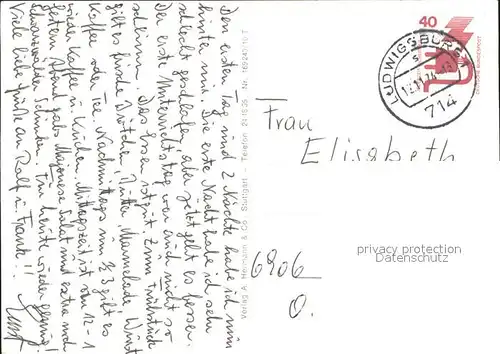 Den ersten Tag und 2 Nächte habe ich nun
hinter mir. Die erste Nacht habe ich sehr
schlecht geschlafen, aber jetzt geht es besser.
Der erste Unterrichtstag war auch nicht so
schlimm. Das Essen ist gut. Zum Frühstück
gibt es frische Brötchen, Butter, Marmelade, Wurst
Kaffee oder Tee. Nachmittags um ½ 3 gibt es
wieder Kaffee u. Kuchen. Mittagszeit ist von 12 - 1
gestern Abend gab's Mayonese Salat und extra noch
Schwarzwälder Schinken. Für heute wieder genug!
Viele liebe Grüße an Ralf u. Frank!!
Verlag A. Heimann & Co. Stuttgart - Telefon 24 15 25 Nr.
40
DEUTSCHE BUNDESPOST
LUDWIGSBURG
714
Frau
Elisabeth
6906
O.
privacy protection
Datenschutz